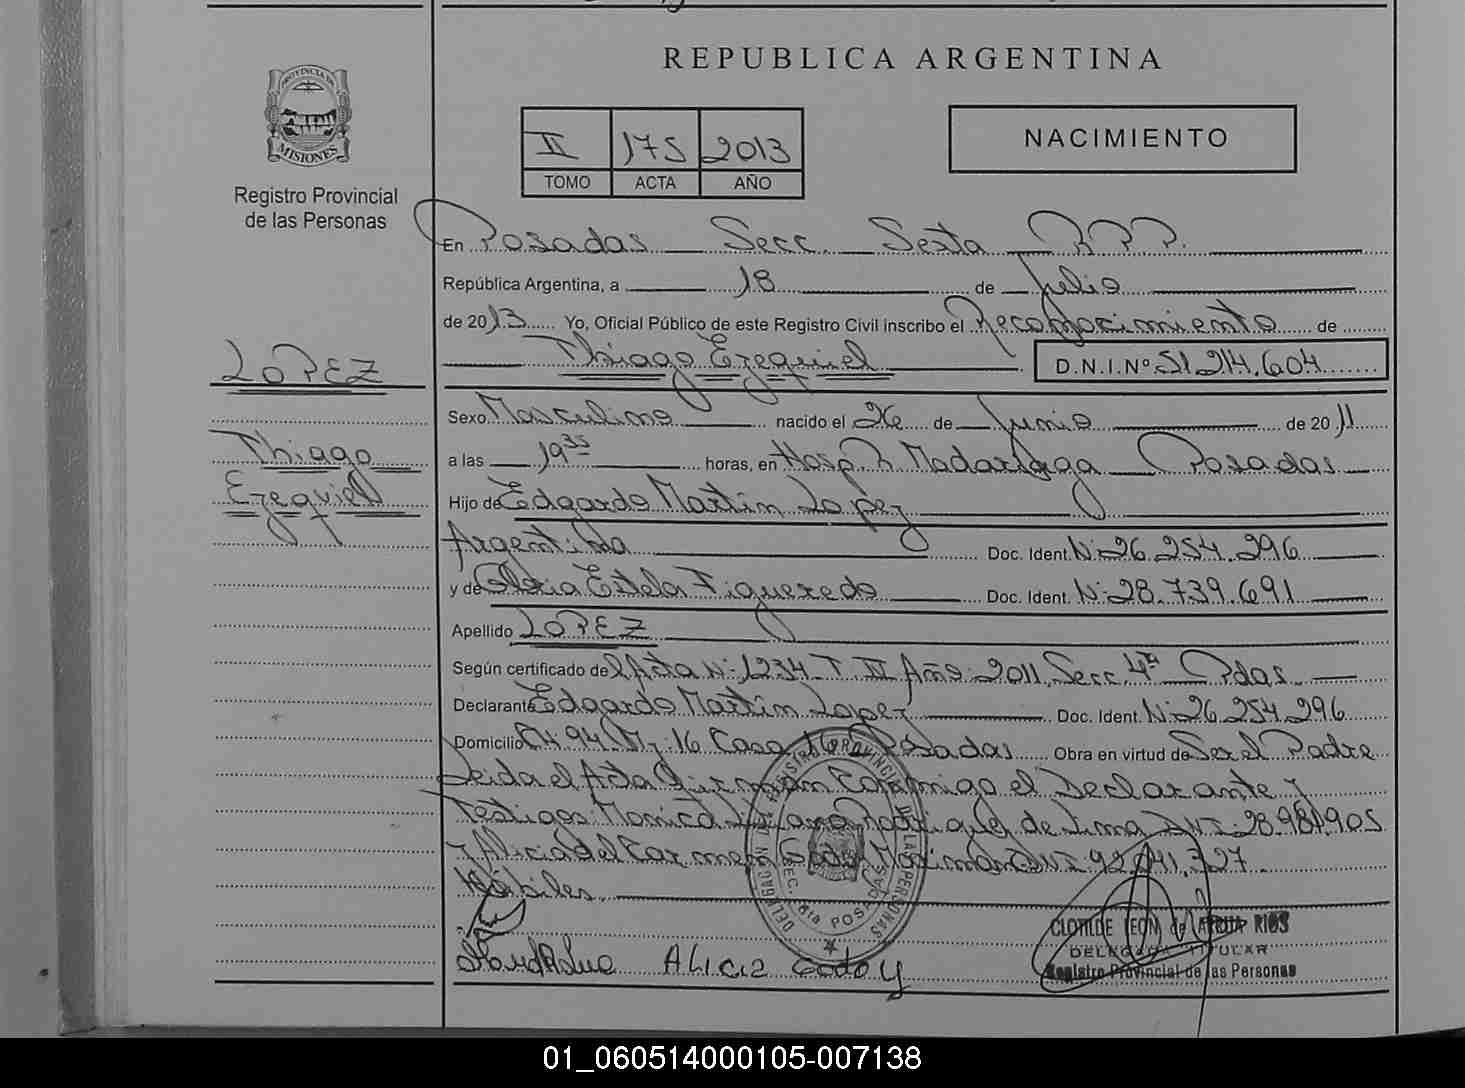 REPUBLICA ARGENTINA
PROVINCIA DE
MISIONES
Registro Provincial
de las Personas
II 175 2013
TOMO ACTA AÑO
NACIMIENTO
En Posadas Secc. Sexta R.P.P.
República Argentina, a 18 de Julio
de 2013 Yo, Oficial Público de este Registro Civil inscribo el Reconocimiento de
Thiago Ezequiel D.N.I.Nº 51.214.604
LOPEZ
Thiago
Ezequiel
Sexo Masculino nacido el 26 de Junio de 2011
a las 19 35 horas, en Hosp. R. Madariaga Posadas
Hijo de Edgardo Martín Lopez
Argentino Doc. Ident. Nº 26.254.296
y de Estela Figueredo Doc. Ident. Nº 28.739.691
Apellido LOPEZ
Según certificado del Acta Nº 1234 T. III Año 2011 Secc. 4ta Pdas.
Declarante Edgardo Martín Lopez Doc. Ident. Nº 26.254.296
Domicilio CH 94 Mz 16 Casa 16 Posadas Obra en virtud de Ser el Padre
Leida el Acta Firman Conmigo el Declarante y
Testigos: Monica Liliana Rodriguez de Lima DNI 28.981.905
y Alicia del Carmen Godoy DNI 92.041.327
Hábiles.
REGISTRO PROVINCIAL DE LAS PERSONAS
SEC. 6ta POSADAS
Alicia Godoy
CLOTILDE LEON de RIOS
DELEGADA TITULAR
Registro Provincial de las Personas
01_060514000105-007138